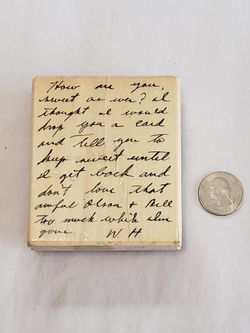 How are you,
sweet as ever? I
thought I would
drop you a card
and tell you to
keep sweet until
I get back and
don't love that
awful Olson & Bill
too much while I'm
gone. W H